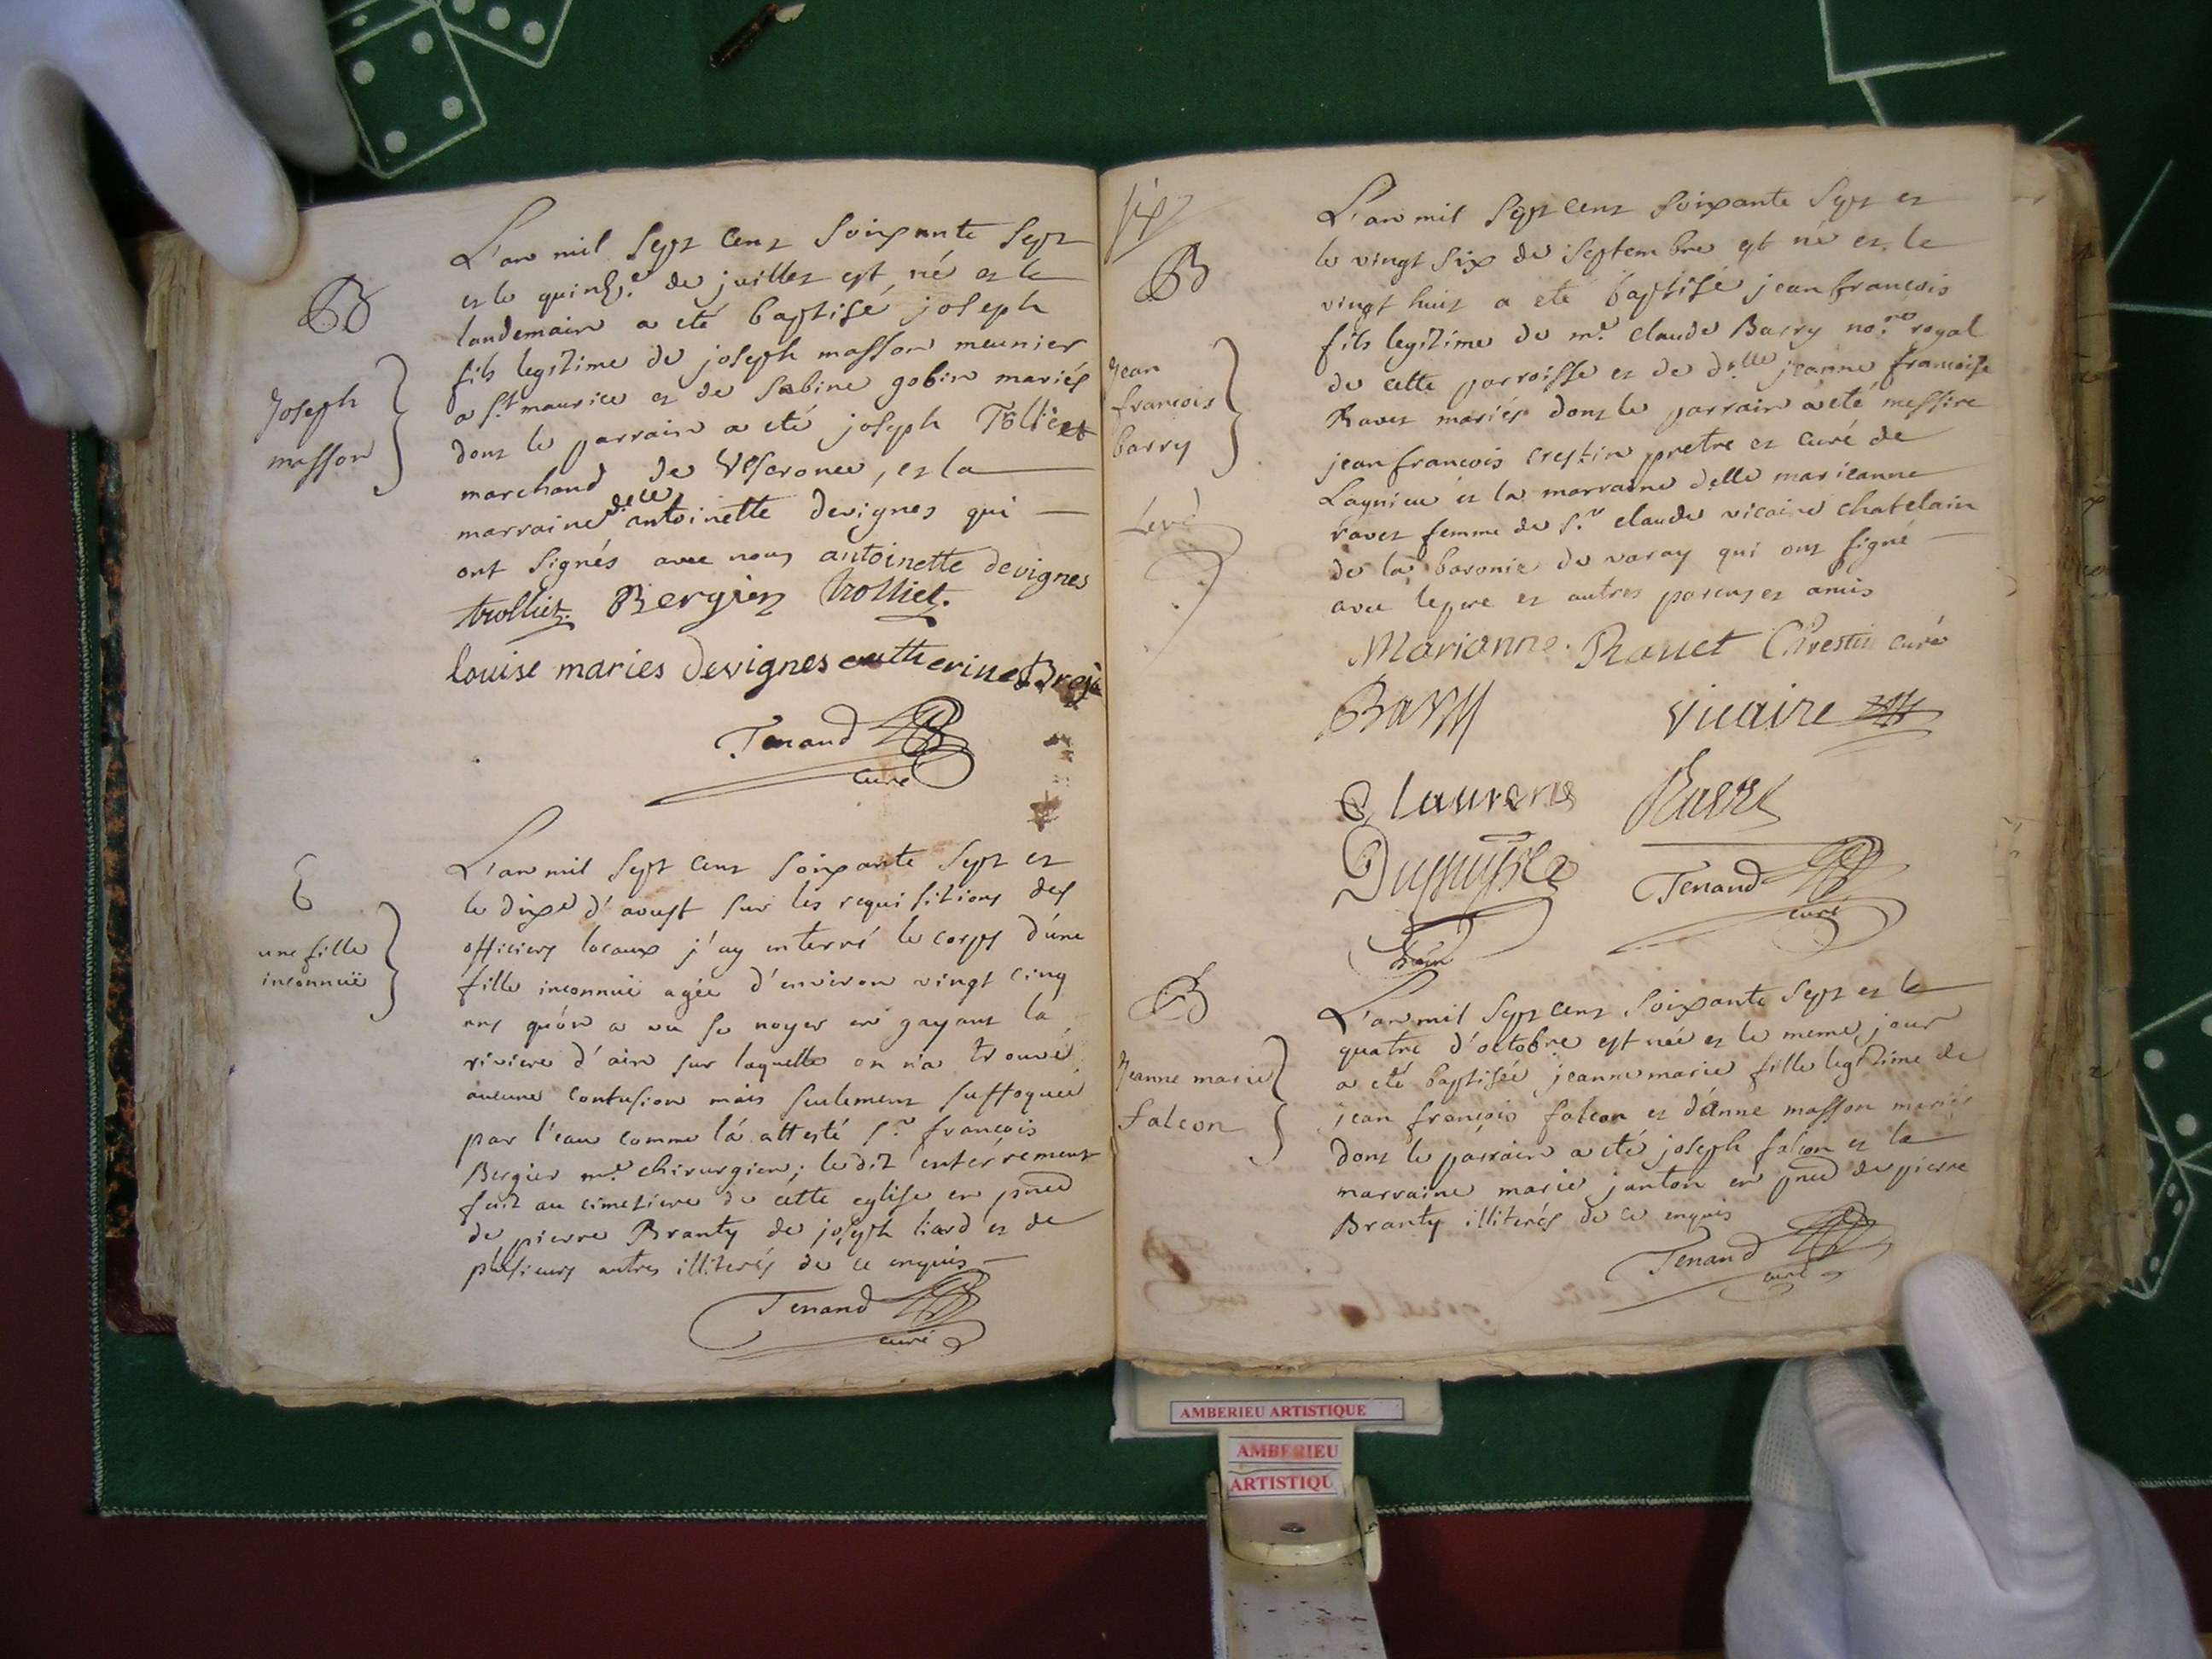 B
Joseph
masson
L'an mil sept cent soixante sept
et le quinze de juillet est né et le
landemain a eté baptisé joseph
fils legitime de joseph masson meunier
a St maurice et de Sabine gobin mariés
dont le parrain a eté joseph Tolliet
marchand de Veseronce, et la
marraine delle antoinette devignes qui
ont signés avec nous antoinette devignes
trolliet. Bergier trolliet.
louise maries devignes catherine
Tenand
curé
E
une fille
inconnuë
L'an mil sept cent soixante sept et
le dixe d'aoust sur les requisitions des
officiers locaux j'ay enterré le corps d'une
fille inconnuë agée d'environ vingt cinq
ans qu'on a vu se noyer en gayant la
riviere d'ain sur laquelle on n'a trouvé
aucune contusion mais seulement suffoquée
par l'eau comme l'a attesté Sr francois
Bergier me chirurgien; ledit enterrement
fait au cimetiere de cette eglise en pnce
de pierre Branty de joseph liard et de
plusieurs autres illiterés de ce enquis
Tenand
curé
six
B
Jean
francois
barry
Levé
L'an mil sept cent soixante sept et
le vingt six de septembre est né et le
vingt huit a eté baptisé jean francois
fils legitime de me claude Barry nore royal
de cette parroisse et de delle jeanne francoise
Ravet mariés dont le parrain a eté messire
jean francois crestin pretre et curé de
Lagnieu et la marraine delle marieanne
ravet femme de Sr claude vicaire chatelain
de la baronie de varay qui ont signé
avec le pere et autres parens et amis
Marianne. Ravet Crestin curé
Barry vicaire
C laurens Ravet
Dupuy
Tenand
curé
B
Jeanne marie
falcon
L'an mil sept cent soixante sept et le
quatre d'octobre est née et le meme jour
a eté baptisée jeanne marie fille legitime de
jean françois falcon et d'anne masson mariés
dont le parrain a eté joseph falcon et la
marraine marie janton en pnce de pierre
Branty illiterés de ce enquis
Tenand
curé
AMBERIEU ARTISTIQUE
AMBERIEU
ARTISTIQU